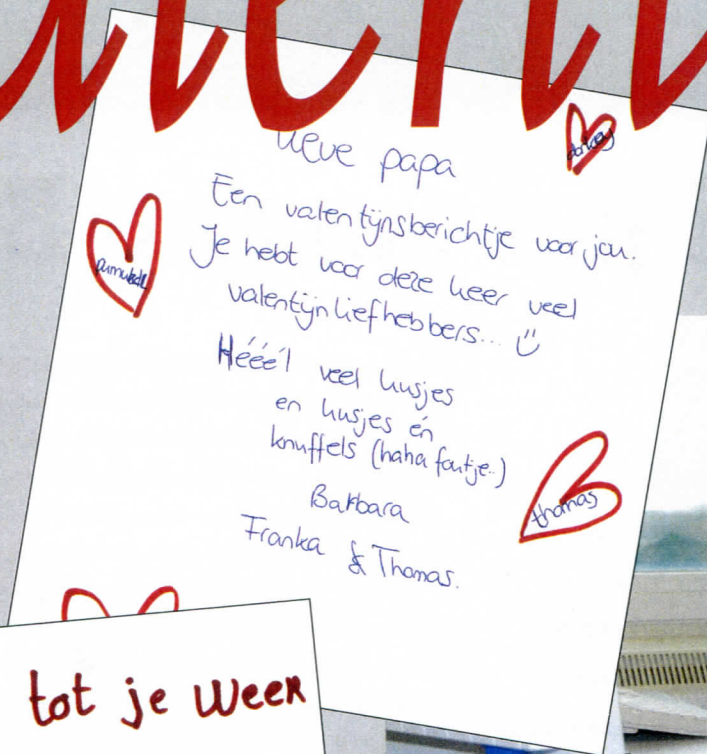 lieve papa
Een valentijnsberichtje voor jou.
Je hebt voor deze keer veel
valentijnliefhebbers...
Hééél veel kusjes
en kusjes én
knuffels (haha foutje..)
Barbara
Franka & Thomas.
thomas
tot je weer